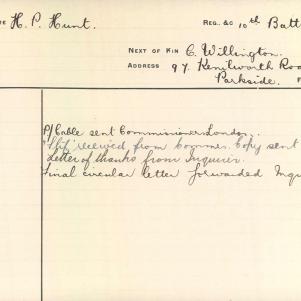 H. P. Hunt.
REG. &C 10th Batt
NEXT OF KIN C. Willington.
ADDRESS 97. Kenilworth Roa
Parkside.
P/Cable sent Commissioner London.
received from Commr. Copy sent
Letter of thanks from Inquirer.
Final circular letter forwarded Inqu